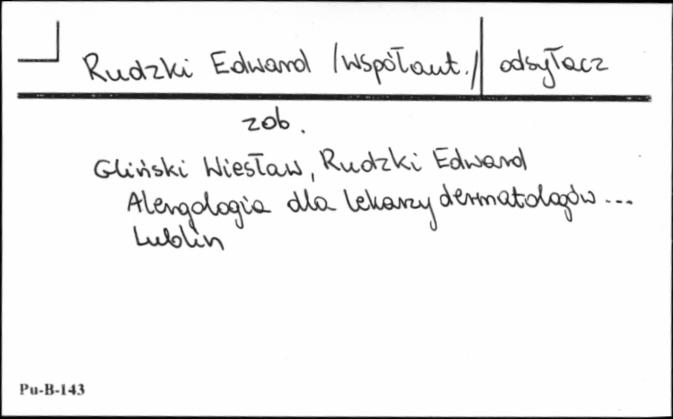 Rudzki Edward /współaut./ odsyłacz
zob.
Gliński Wiesław, Rudzki Edward
Alergologia dla lekarzy dermatologów...
Lublin
Pu-B-143